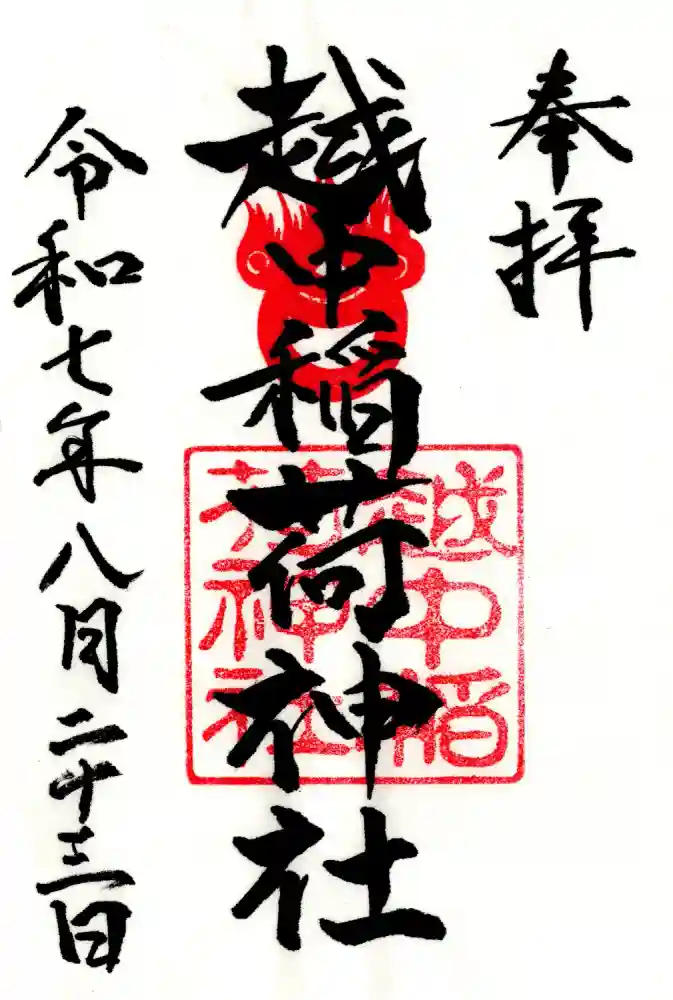 奉拝
越中稲荷神社
越中稲荷神社
令和七年八月二十三日